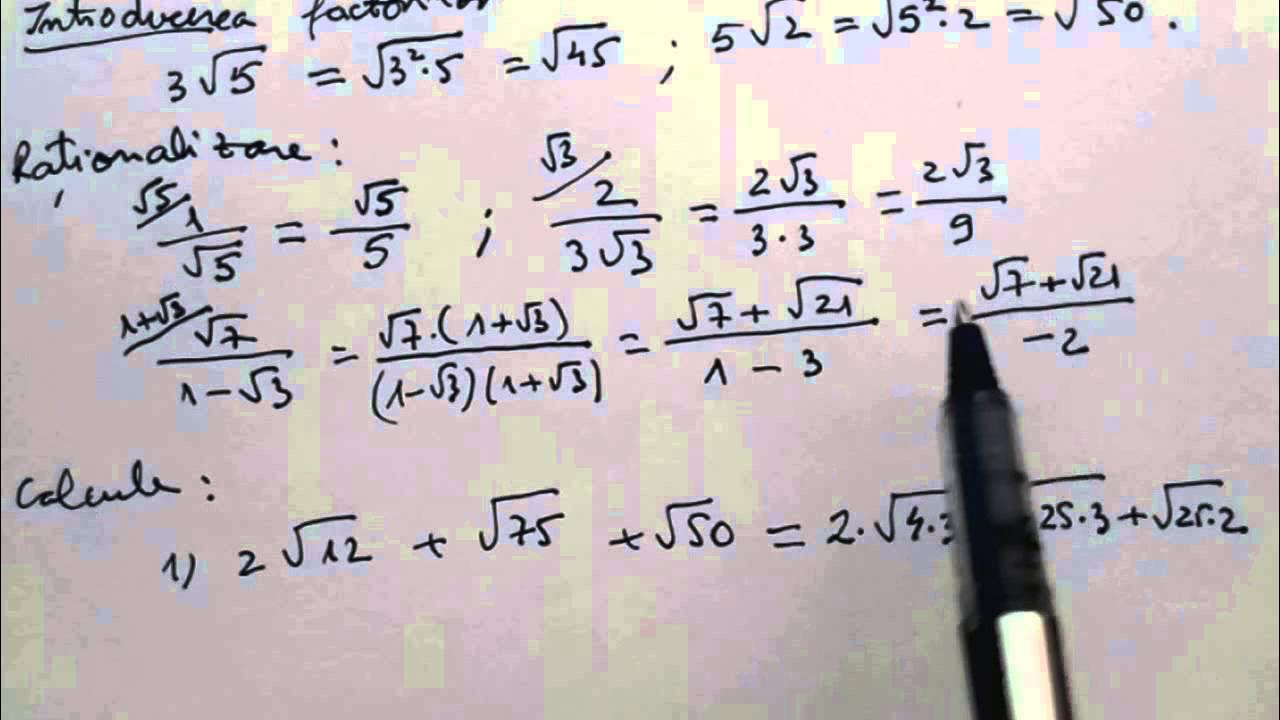 Introducerea factorilor
3√5 = √3²·5 = √45 ; 5√2 = √5²·2 = √50 .
Raționalizare :
√5/ 1/√5 = √5/5 ; √3/ 2/3√3 = 2√3/3·3 = 2√3/9
1+√3/ √7/1-√3 = √7·(1+√3)/(1-√3)(1+√3) = √7+√21/1-3 = √7+√21/-2
Calcule :
1) 2√12 + √75 + √50 = 2·√4·3 25·3 + √25·2